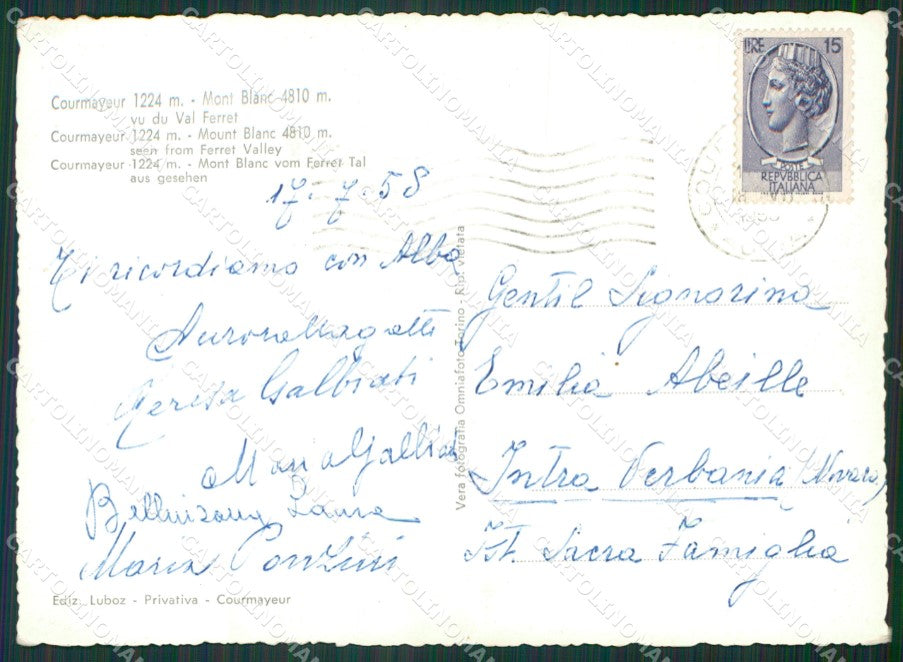 Courmayeur 1224 m. - Mont Blanc 4810 m.
vu du Val Ferret
Courmayeur 1224 m. - Mount Blanc 4810 m.
seen from Ferret Valley
Courmayeur 1224 m. - Mont Blanc vom Ferret Tal
aus gesehen
17-7-58
Ti ricordiamo con Alba
Aurora Magatti
Galbiati
Maria Galbiati
Bellinzona Laura
Maria Ponzini
Ediz. Luboz - Privativa - Courmayeur
Vera fotografia Omniafoto Torino - Rip. vietata
LIRE 15
POSTE
REPVBBLICA
ITALIANA
Gentil Signorina
Emilia Abeille
Intra Verbania (Novara)
Ist. Sacra Famiglia
CARTOLINOMANIA